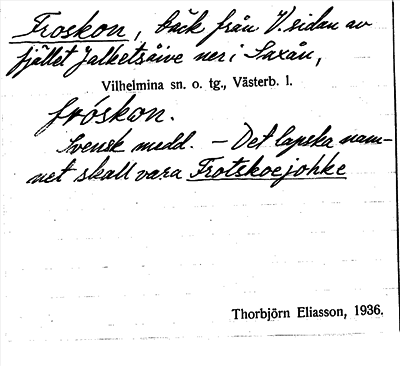 Froskon, bäck från V. sidan av
fjället Jalketsåive ner i Saxån,
Vilhelmina sn. o. tg., Västerb. l.
fróskon.
Svensk medd. – Det lapska nam-
net skall vara Frotskoejohke
Thorbjörn Eliasson, 1936.